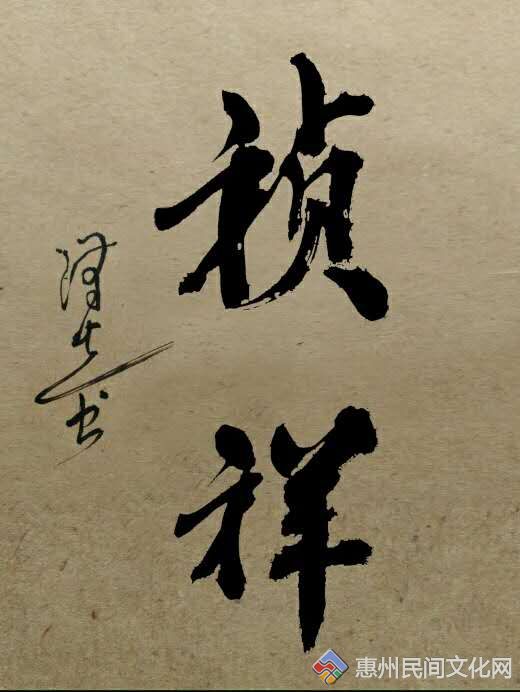 祯祥
书
惠州民间文化网